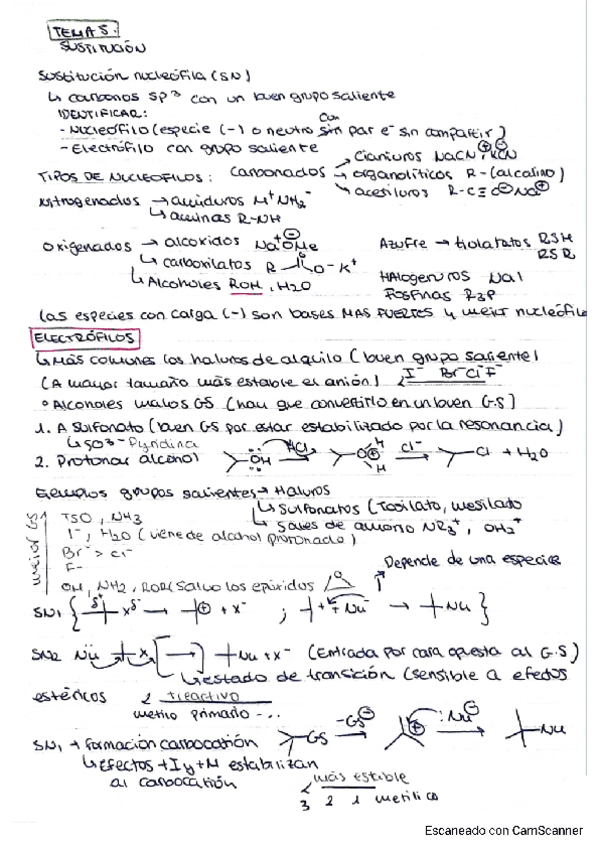 TEMA 5.
SUSTITUCIÓN
Sustitución nucleófila (SN)
↳ carbonos sp³ con un buen grupo saliente
IDENTIFICAR:
- Nucleófilo (especie (-) o neutro con par e⁻ sin compartir)
- Electrófilo con grupo saliente
TIPOS DE NUCLEOFILOS: Carbonados → cianuros NaCN, KCN
→ organolíticos R-(alcalino)
→ acetiluros R-C≡C⊖Na⊕
Nitrogenados → amiduros M⁺NH₂⁻
↳ aminas R-NH
Oxigenados → alcoxidos Na⁺OMe
↳ carboxilatos R O⁻K⁺
↳ Alcoholes ROH, H2O
Azufre → tiolatatos RSH
RSR
HAlogenuros NaI
Fosfinas R3P
las especies con carga (-) son bases MAS FUERTES y mejor nucleófila
ELECTRÓFILOS
↳ Más comunes los haluros de alquilo (buen grupo saliente)
(A mayor tamaño más estable el anión) I⁻ Br⁻ Cl⁻ F⁻
• Alcoholes malos GS (hay que convertirlo en un buen G.S)
1. A Sulfonato (buen GS por estar estabilizado por la resonancia)
↳ SO3 - Pyridina
2. Protonar alcohol OH HCl → O⊕ H H Cl⁻ → Cl + H2O
Ejemplos grupos salientes → Haluros
↳ Sulfonatos (Tosilato, mesilado
↳ Sales de amonio NR3⁺, OH2⁺
mejor GS
TSO, NH3
I⁻, H2O (viene de alcohol protonado)
Br⁻ > Cl⁻
F⁻
OH, NH2, ROR (salvo los epóxidos O
Depende de una especie
SN1 { δ⁺ x δ⁻ → ⊕ + x⁻ ; + Nu⁻ → Nu }
SN2 Nu x [→] Nu + x⁻ (Entrada por cara opuesta al G.S)
↳ estado de transición (sensible a efectos
estéricos) reactivo
metilo primario ...
SN1 → formación carbocatión GS -GS⊖ → ⊕ :Nu⊖ → Nu
↳ Efectos +I y +M estabilizan
al carbocatión
más estable
3 2 1 metílico
Escaneado con CamScanner